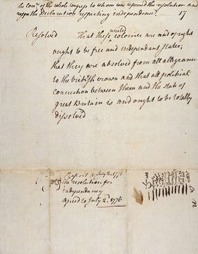 The com.ee of the whole congress to whom was referred the resolution and
the Declaration respecting independence. 17
Resolved That these united colonies are and of right
ought to be free and independant states;
that they are absolved from all allegiance
to the british crown and that all political
connection between them and the state of
great Britain is and ought to be totally
dissolved
resolution for
independancy
agreed to July 2. 1776